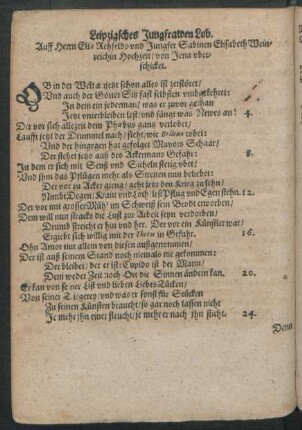 Leipzigsches Jungfrawen Lob.
Auff Herrn Eli- Rehfelds und Jungfer Sabinen Elisabeth Wein-
reichin Hochzeit/ von Jena uber-
schicket.
OB in der Welt a jetzt schon alles ist zerstöret/
Und auch der Götter Sin fast selbsten umbgekehret:
In dem ein jederman/ was er zuvor gethan
Jetzt unterbleiben lest/ und fängt was Newes an! 4.
Der vor sich allezeit dem Phœbus gantz verlobet/
Laufft jetzt der Drummel nach/ siehe/ wie tobet:
Und der hingegen hat gefolget Mavors Schaar/
Der stehet jetzo auff des Ackermans Gefahr: 8.
In dem er sich mit Senß und Sicheln stetig übet/
Und ihm das Pflügen mehr als Streiten nun beliebet:
Der vor zu Acker gieng/ geht jetzt den Krieg zu sehn/
Nimbt Degen/ Kraut und Loth lest Pflug und Egen stehn. 12.
Der vor mit grosser Müh/ im Schweiß sein Brodt erworben/
Dem will nun stracks die Lust zur Arbeit seyn verdorben/
Drumb streicht er hin und her. Der vor ein Künstler war/
Ergiebt sich willig mit der in Gefahr. 16.
Ohn Amor nur allein von diesen außgenommen/
Der ist auß seinem Stand noch niemals nie gekommen:
Der bleibet/ der er ist: Cupido ist der Mann/
Dem weder Zeit noch Ort die Sinnen ändern kan. 20.
Er kan von seiner List und lieben Liebes-Tücken/
Von seiner Triegerey/ und was er sonst für Stücken
Zu seinen Künsten braucht: so gar noch lassen nicht
Je mehr ihn einer fleucht/ je mehr er nach ihn sticht. 24.
Denn